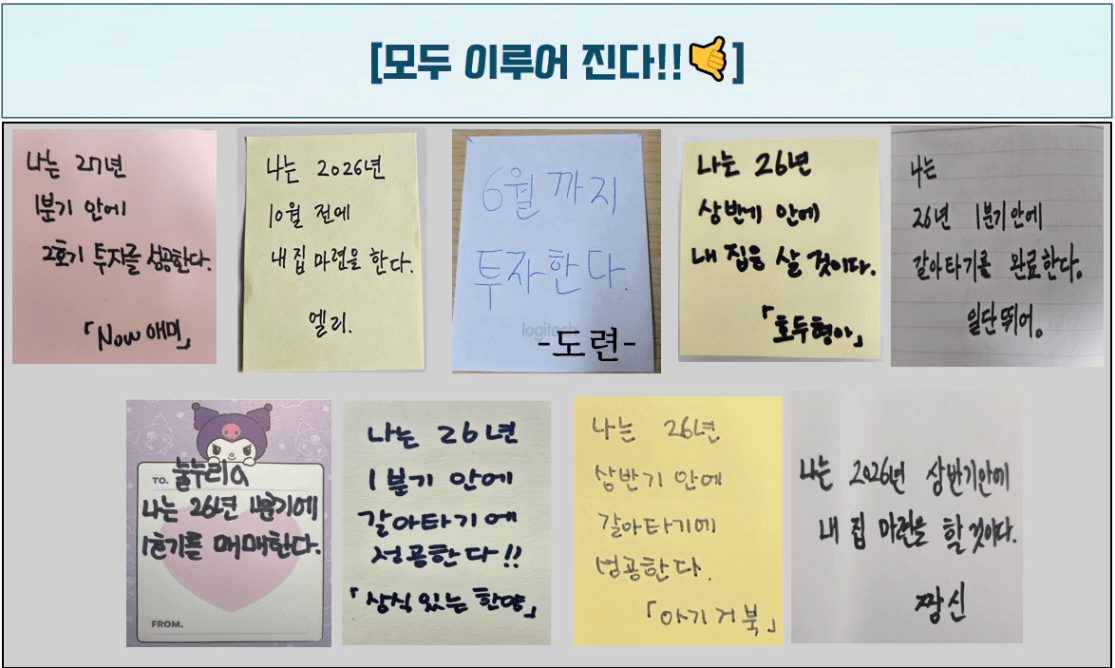 [모두 이루어 진다!!🤙]
나는 27년
1분기 안에
2호기 투자를 성공한다.
「Now 애미」
나는 2026년
10월 전에
내 집 마련을 한다.
엘리.
6월까지
투자한다.
logitech
-도련-
나는 26년
상반기 안에
내 집을 살 것이다.
「호두형아」
나는
26년 1분기안에
갈아타기를 완료한다.
일단뛰어。
TO. 눌누리a
나는 26년 1분기에
1호기를 매매한다.
FROM.
나는 26년
1분기 안에
갈아타기에
성공한다!!
「상식 있는 한양」
나는 26년
상반기 안에
갈아타기에
성공한다.
「아기거북」
나는 2026년 상반기안에
내 집 마련을 할 것이다.
짱신